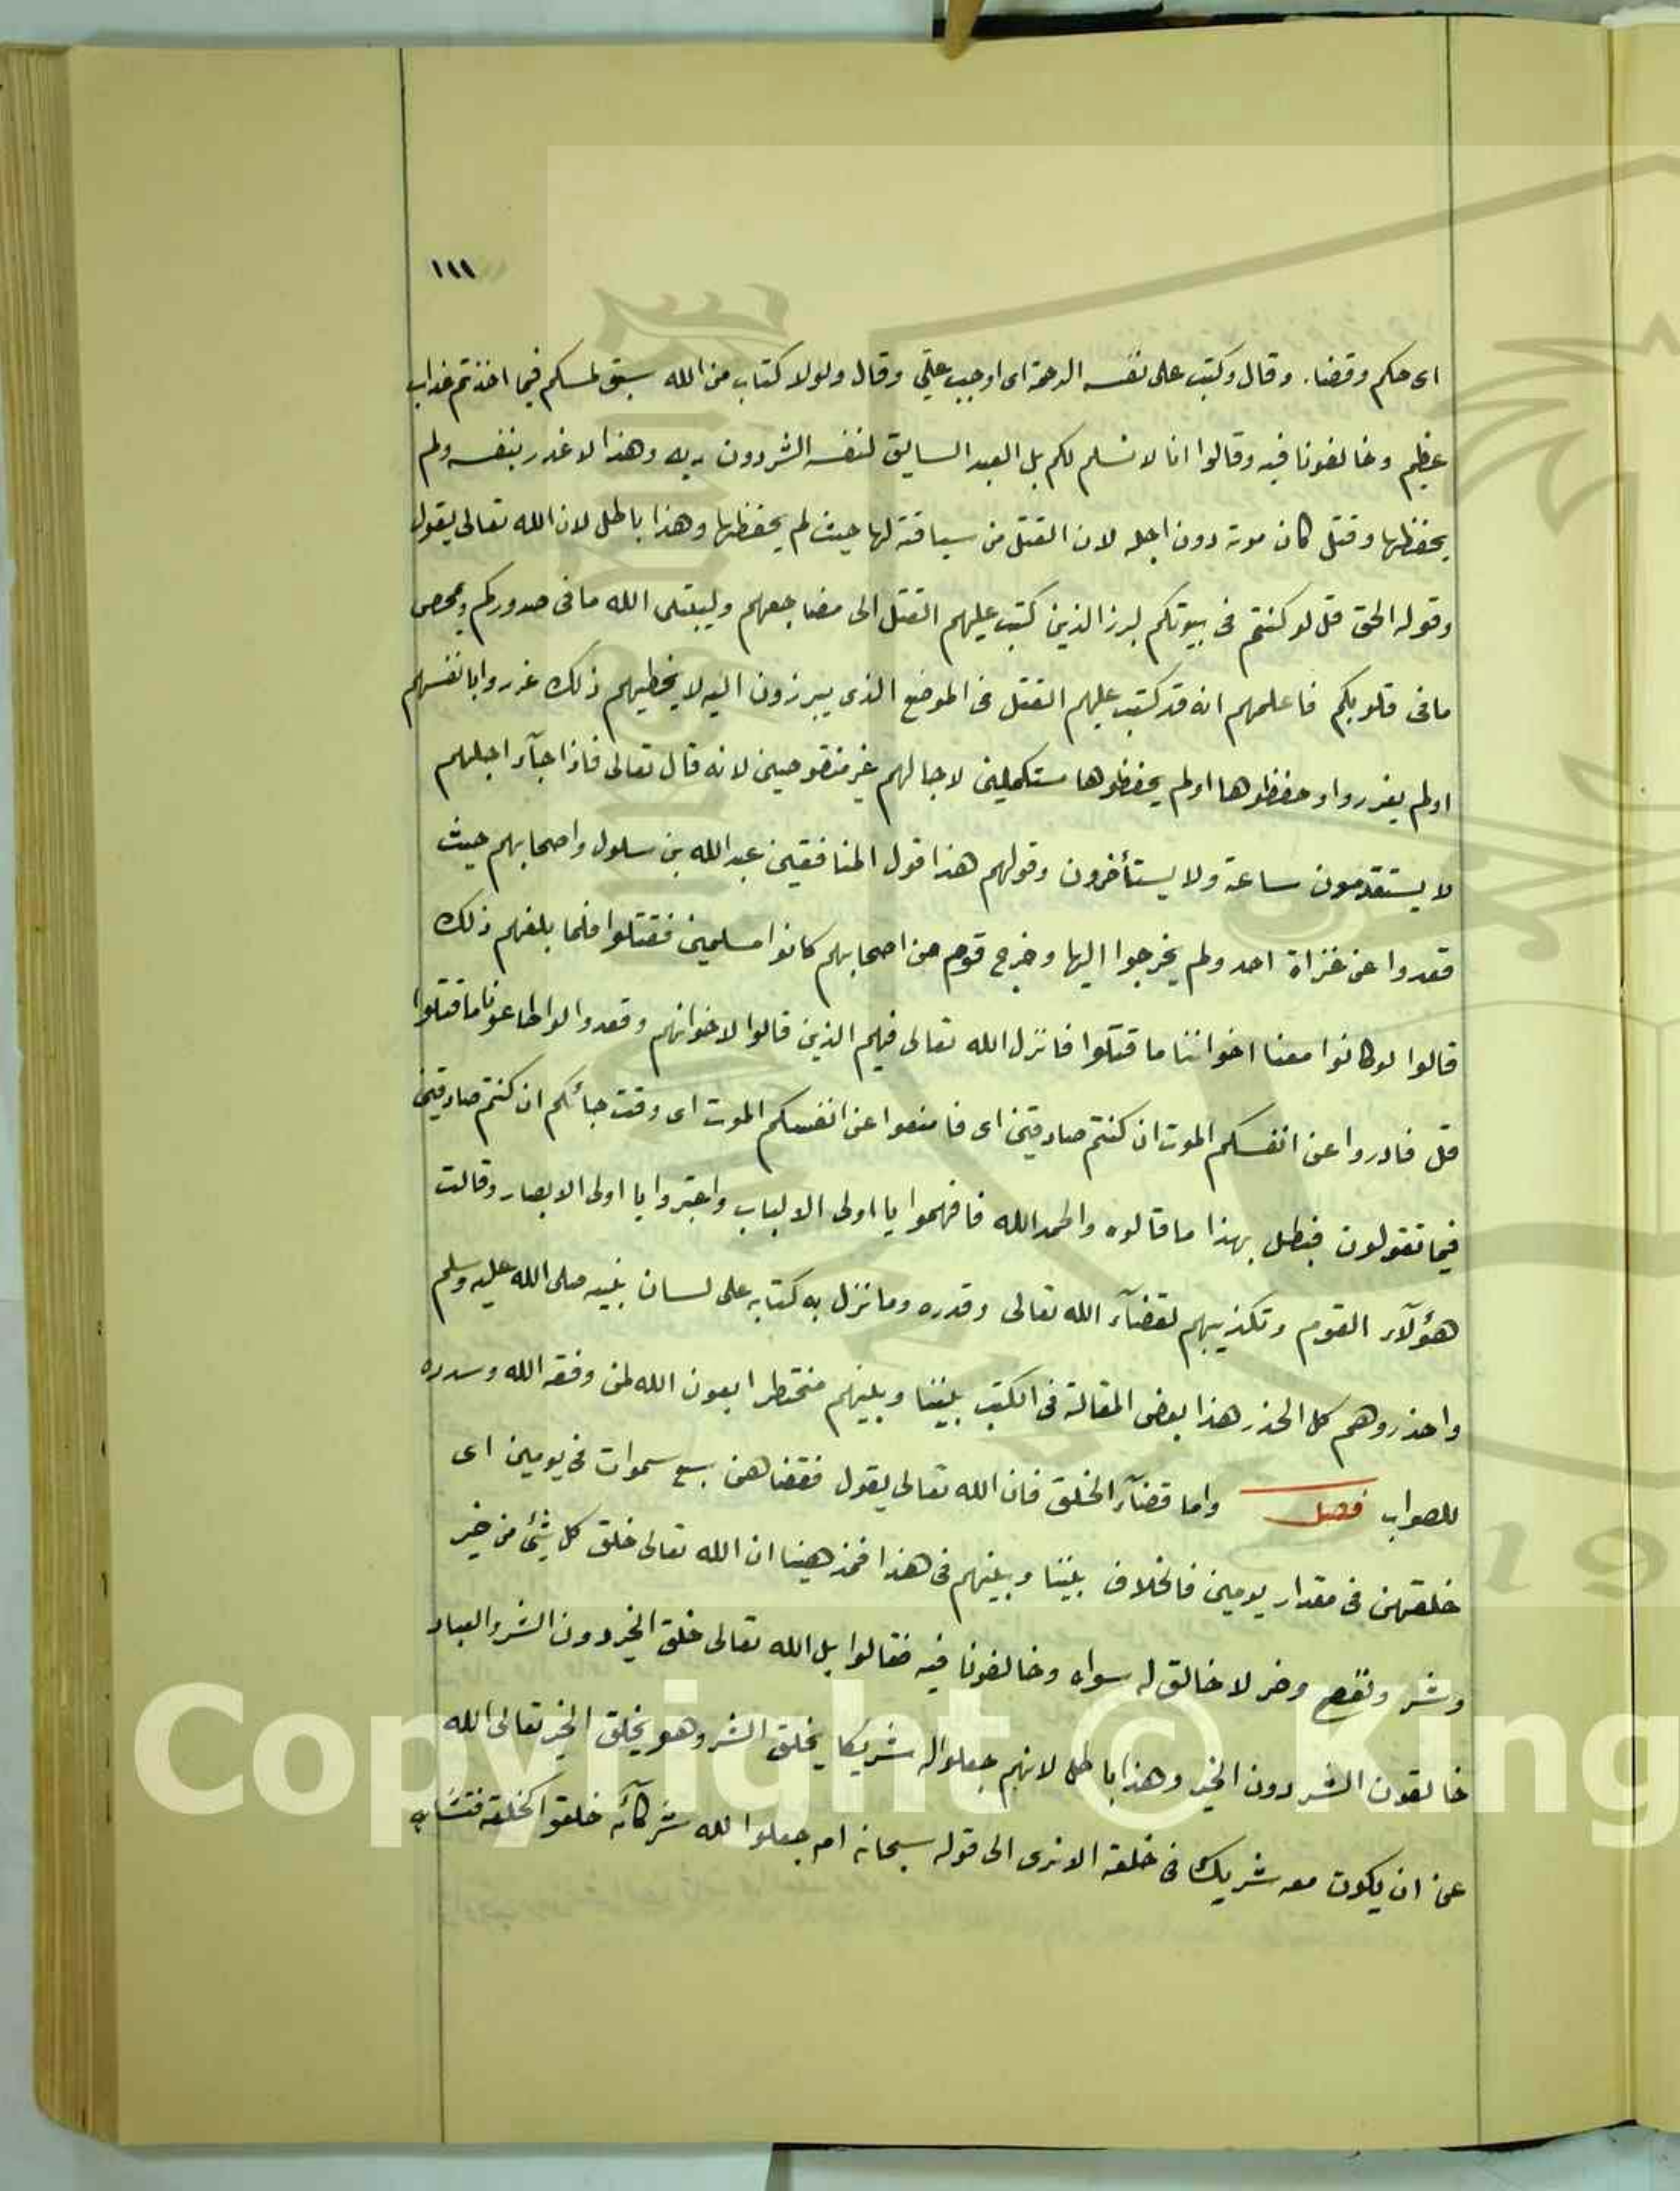 ١١١
اى حكم وقضا. وقال وكتب على نفسه الرحمة اى اوجب علىّ وقال ولولا كتاب من الله سبق لمسكم فيما اخذتم عذاب
عظيم وخالفونا فيه وقالوا انا لا نسلم لكم بل العبد السايق لنفسه الشر دون ربه وهذا لا غدر بنفسه ولم
يحفظها وقتل كان موته دون اجله لان القتل من سياقته لها حيث لم يحفظها وهذا باطل لان الله تعالى يقول
وقوله الحق قل لو كنتم فى بيوتكم لبرز الذين كتب عليهم القتل الى مضاجعهم وليبتلى الله ما فى صدوركم وليمحص
ما فى قلوبكم فاعلمهم انه قد كتب عليهم القتل فى الموضع الذى يبرزون اليه لا يخطيهم ذلك غرروا بانفسهم
اولم يغرروا وحفظوها اولم يحفظوها مستكملين لاجالهم غير منقوصين لانه قال تعالى فاذا جآء اجلهم
لا يستقدمون ساعة ولا يستأخرون وقولهم هذا قول المنافقين عبدالله بن سلول واصحابهم حيث
قعدوا عن غزاة احد ولم يخرجوا اليها وخرج قوم من اصحابهم كانوا مسلمين فقتلوا فلما بلغهم ذلك
قالوا لو كانوا معنا اخواننا ما قتلوا فانزل الله تعالى فيهم الذين قالوا لاخوانهم وقعدوا لو اطاعونا ما قتلوا
قل فادروا عن انفسكم الموت ان كنتم صادقين اى فامنعوا عن انفسكم الموت اى وقت جائكم ان كنتم صادقين
فيما تقولون فبطل بهذا ما قالوه والحمد الله فافهموا يا اولى الالباب واعتبروا يا اولى الابصار وقالت
هؤلآء القوم وتكذيبهم لقضآء الله تعالى وقدره وما نزل به كتابه على لسان نبيه صلى الله عليه وسلم
واحذروهم كل الحذر هذا بعض المقالة فى الكتب بيننا وبينهم مختطرا بعون الله لمن وفقه الله وسدده
للصواب فصل واما قضآء الخلق فان الله تعالى يقول فقضاهن سبع سموات فى يومين اى
خلقهن فى مقدار يومين فالخلاف بيننا وبينهم فى هذا فمذهبنا ان الله تعالى خلق كل شئ من خير
وشر ونفع وضر لا خالق له سواه وخالفونا فيه فقالوا بل الله تعالى خلق الخير دون الشر والعباد
خالقون الشر دون الخير وهذا باطل لانهم جعلوا له شريكا يخلق الشر وهو يخلق الخير تعالى الله
عن ان يكون معه شريك فى خلقه الا ترى الى قوله سبحانه ام جعلوا لله شركآء خلقوا كخلقه فتشابه
Copyright © King